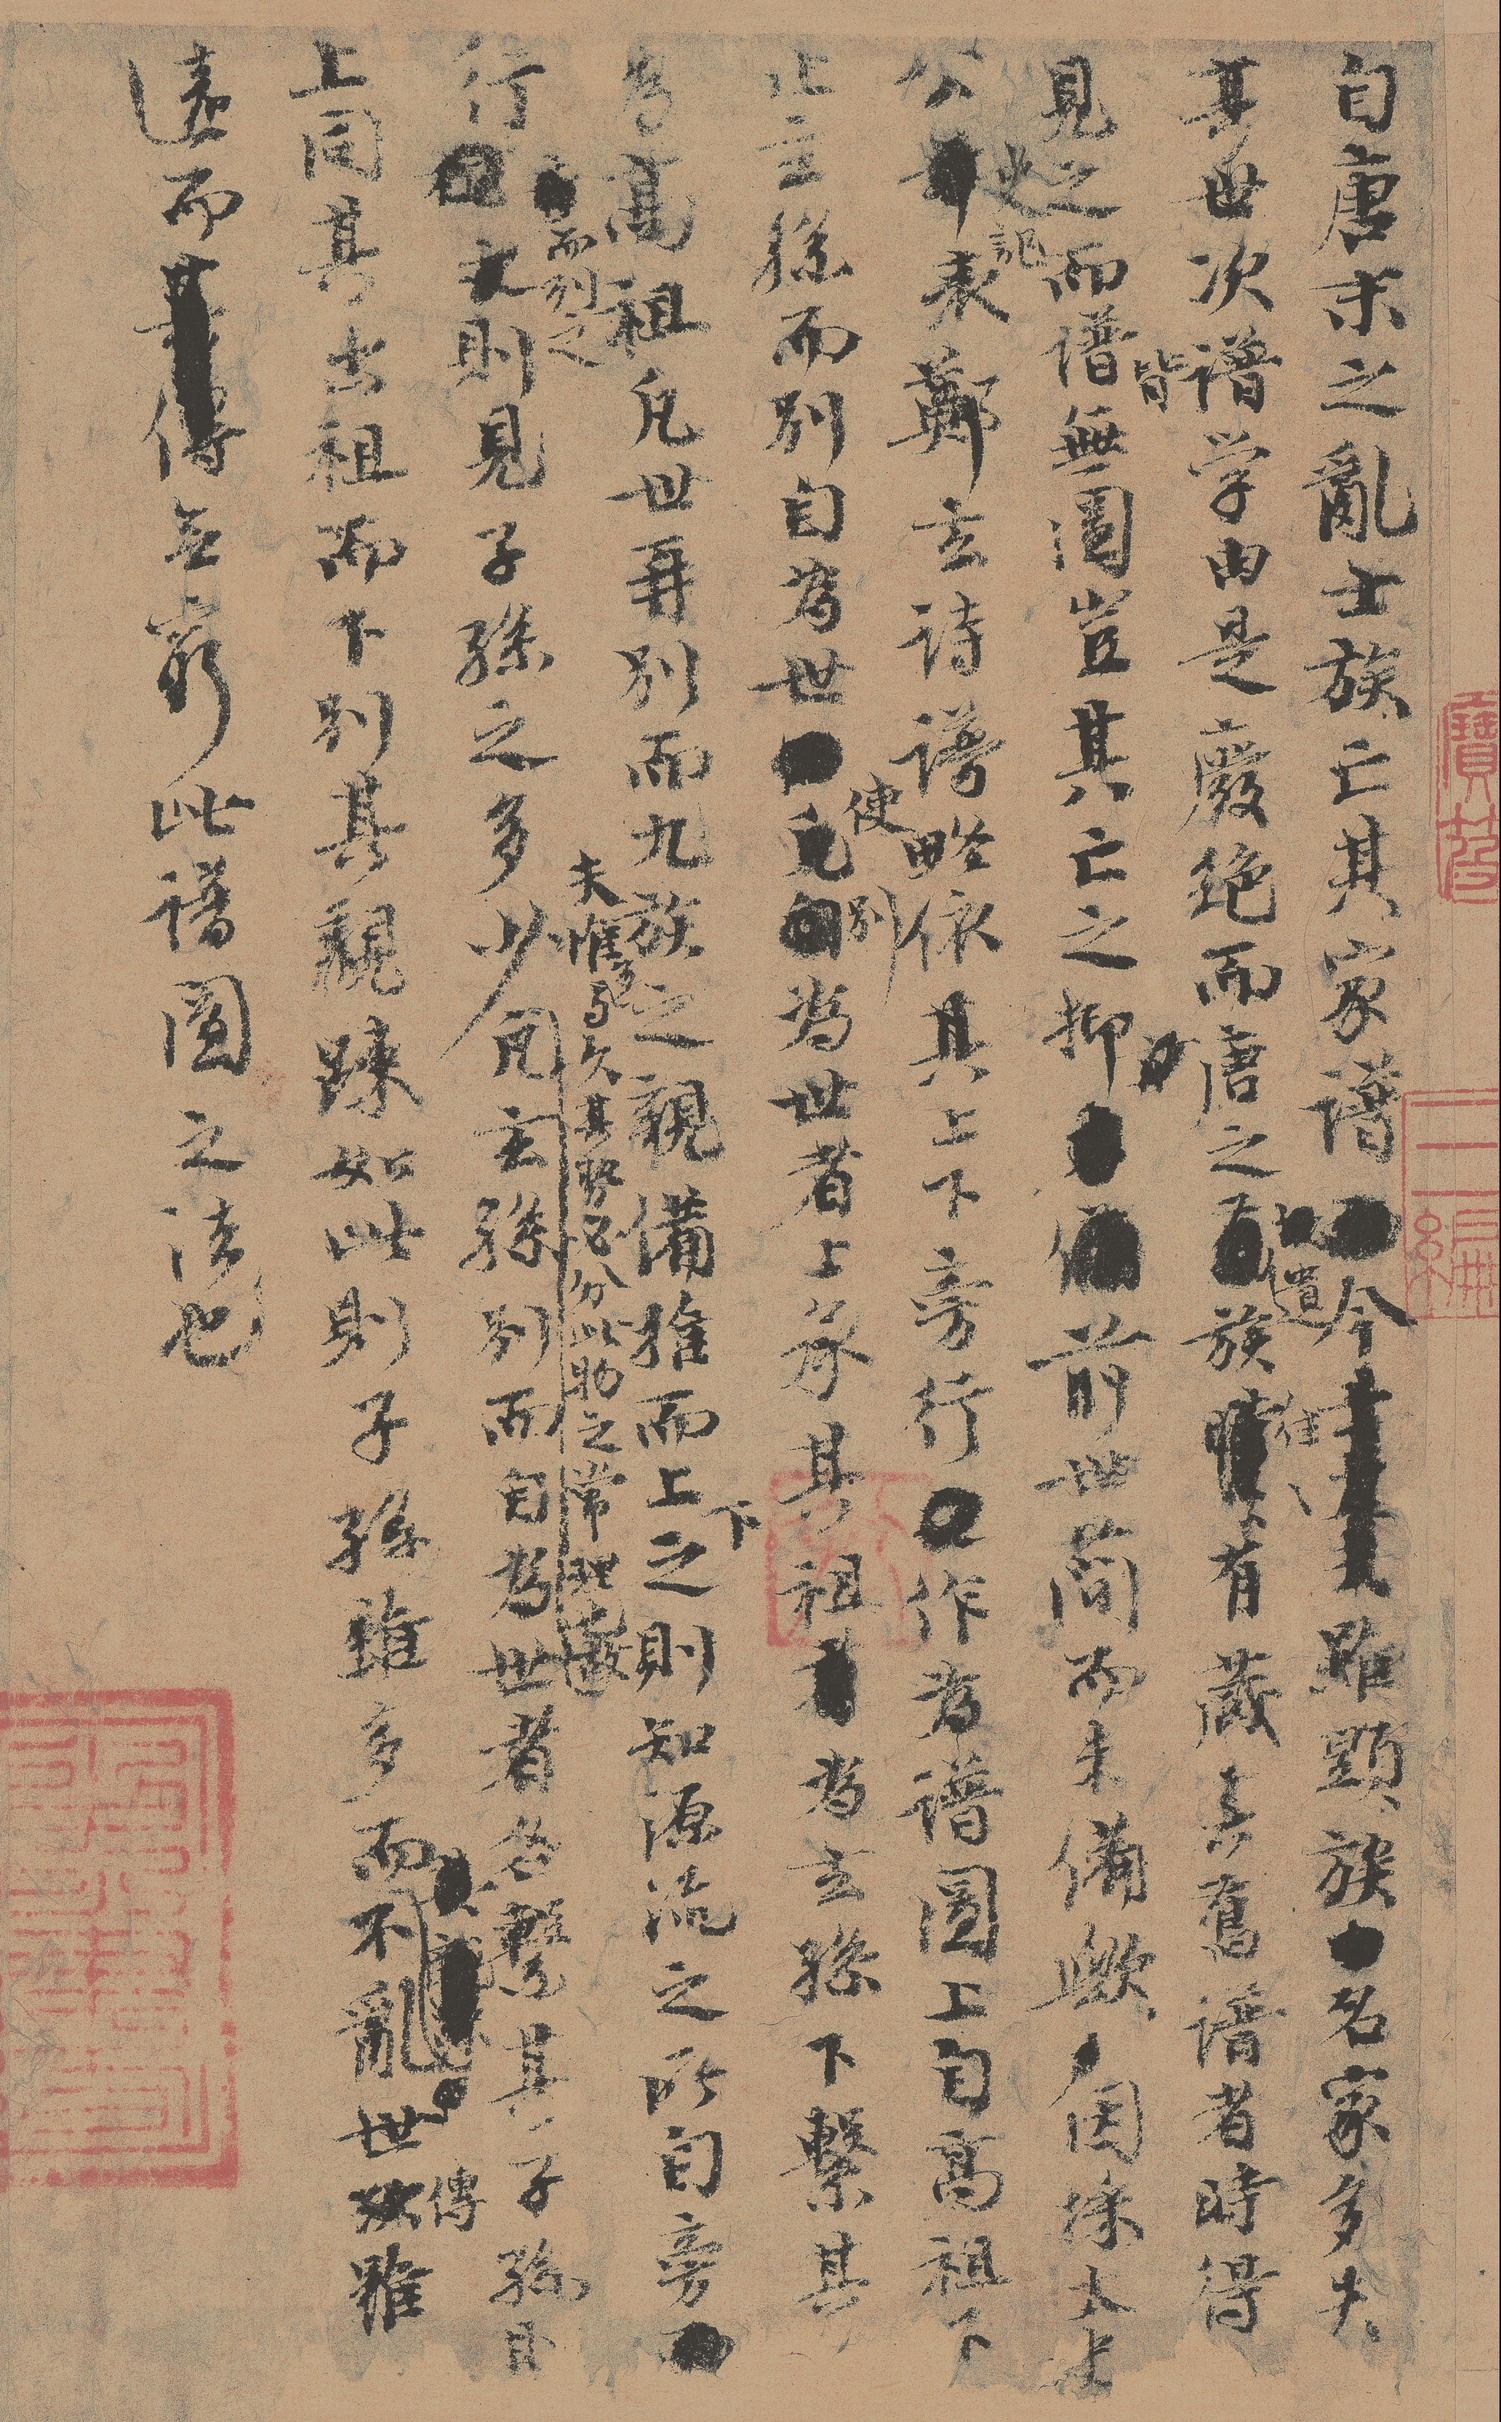 自唐末之亂士族亡其家譜今雖顯族名家多失
其世次譜学由是廢絶而唐之遺族往〻有藏其舊譜者時得
見之而譜皆無圖豈其亡之抑前世簡而未備歟因採太史
公史記表鄭玄詩譜略依其上下旁行作為譜圖上自高祖下
止玄孫而別自為世使別為世者上承其祖為玄孫下繫其
孫為高祖凡世再別而九族之親備推而上下之則知源流之所自旁
行而列之則見子孫之多少夫惟多與久其勢必分此物之常理也凡玄孫別而自為世者各繫其子孫自
上同其出祖而下別其親踈如此則子孫雖多而不亂世傳雖
遠而無窮此譜圖之法也